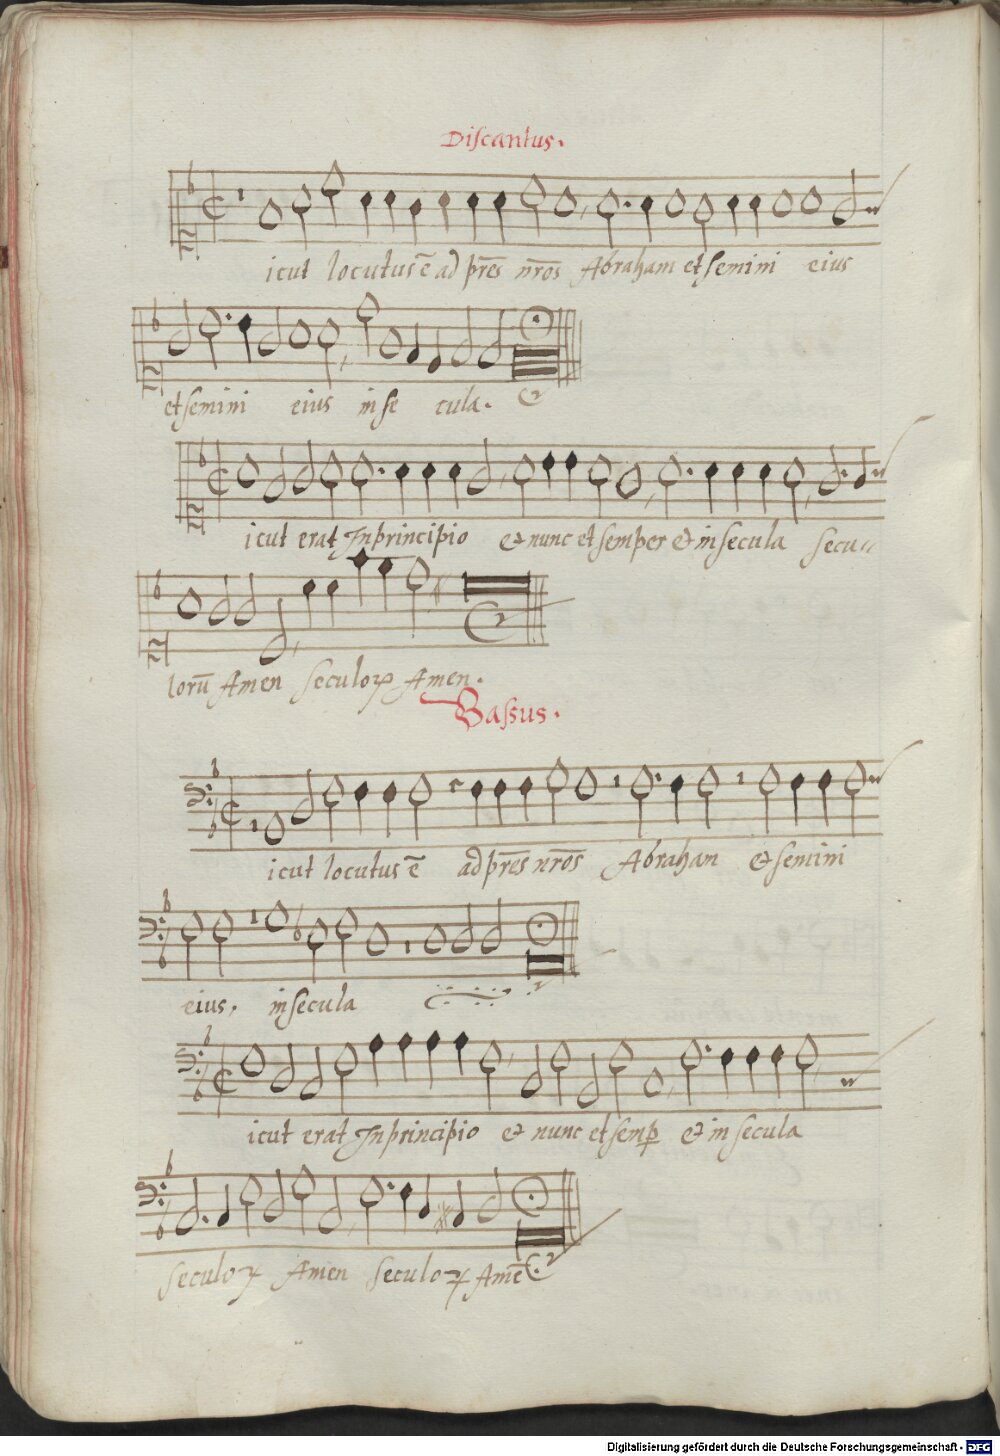 Discantus.
icut locutus ē ad pr̄es nr̄os Abraham et semini eius
et semini eius in se cula.
icut erat In principio & nunc et semper & in secula secu//
lorū Amen seculoꝝ Amen.
Bassus.
icut locutus ē ad pr̄es nr̄os Abraham & semini
eius, in secula
icut erat In principio & nunc et semꝑ & in secula
seculoꝝ Amen seculoꝝ Amē
Digitalisierung gefördert durch die Deutsche Forschungsgemeinschaft - DFG